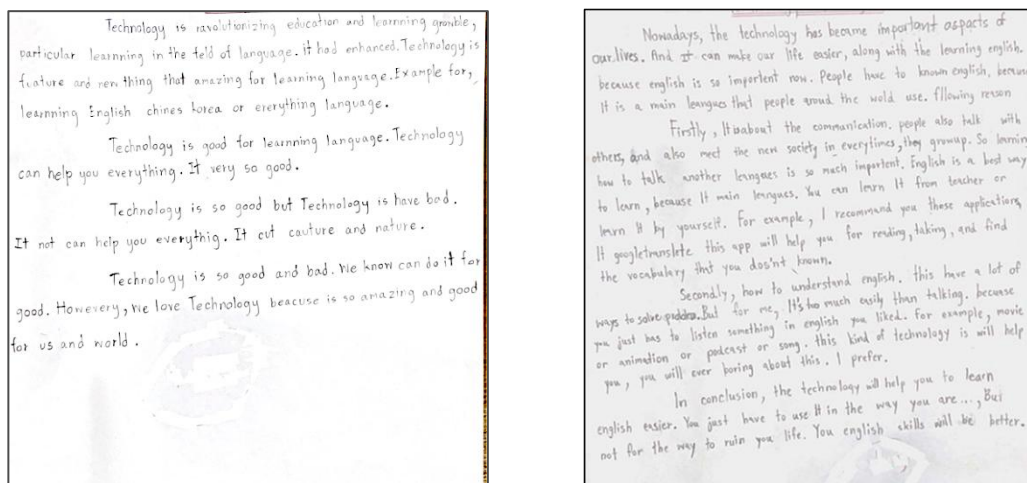 Technology is ravolutionizing education and learnning growble,
particular learnning in the feld of language. it had enhanced. Technology is
fueture and new thing that amazing for learning langvage. Example for,
learnning English chines korea or ererything language.
Technology is good for learnning language. Technology
can help you everything. It very so good.
Technology is so good but Technology is have bad.
It not can help you everythig. It cut cauture and nature.
Technology is so good and bad. We know can do it for
good. Howevery, we love Technology beacuse is so amazing and good
for us and world.
Nowadays, the technology has became important aspacts of
our lives. And It can make our life easier, along with the learning english.
because english is so importent now. People have to known english, because
It is a main leangues that people aroud the wold use. fllowing reason
Firstly, It is about the communication. people also talk with
others, and also meet the new society in everytimes, they growup. So learning
how to talk another leangues is so much importent. English is a best way
to learn, because It main leangues. You can learn It from teacher or
learn It by yourself. For example, I recommand you these applications,
It googletranslete this app will help you for reading, taking, and find
the vocabulary that you dos'nt known.
Secondly, how to understand english. this have a lot of
ways to solve But for me, It's too much easily than talking. because
you just has to listen something in english you liked. For example, movie
or animation or podcast or song. this kind of technology is will help
you, you will ever boring about this. I prefer.
In conclusion, the technology will help you to learn
english easier. You just have to use It in the way you are..., But
not for the way to ruin you life. You english skills will be better.